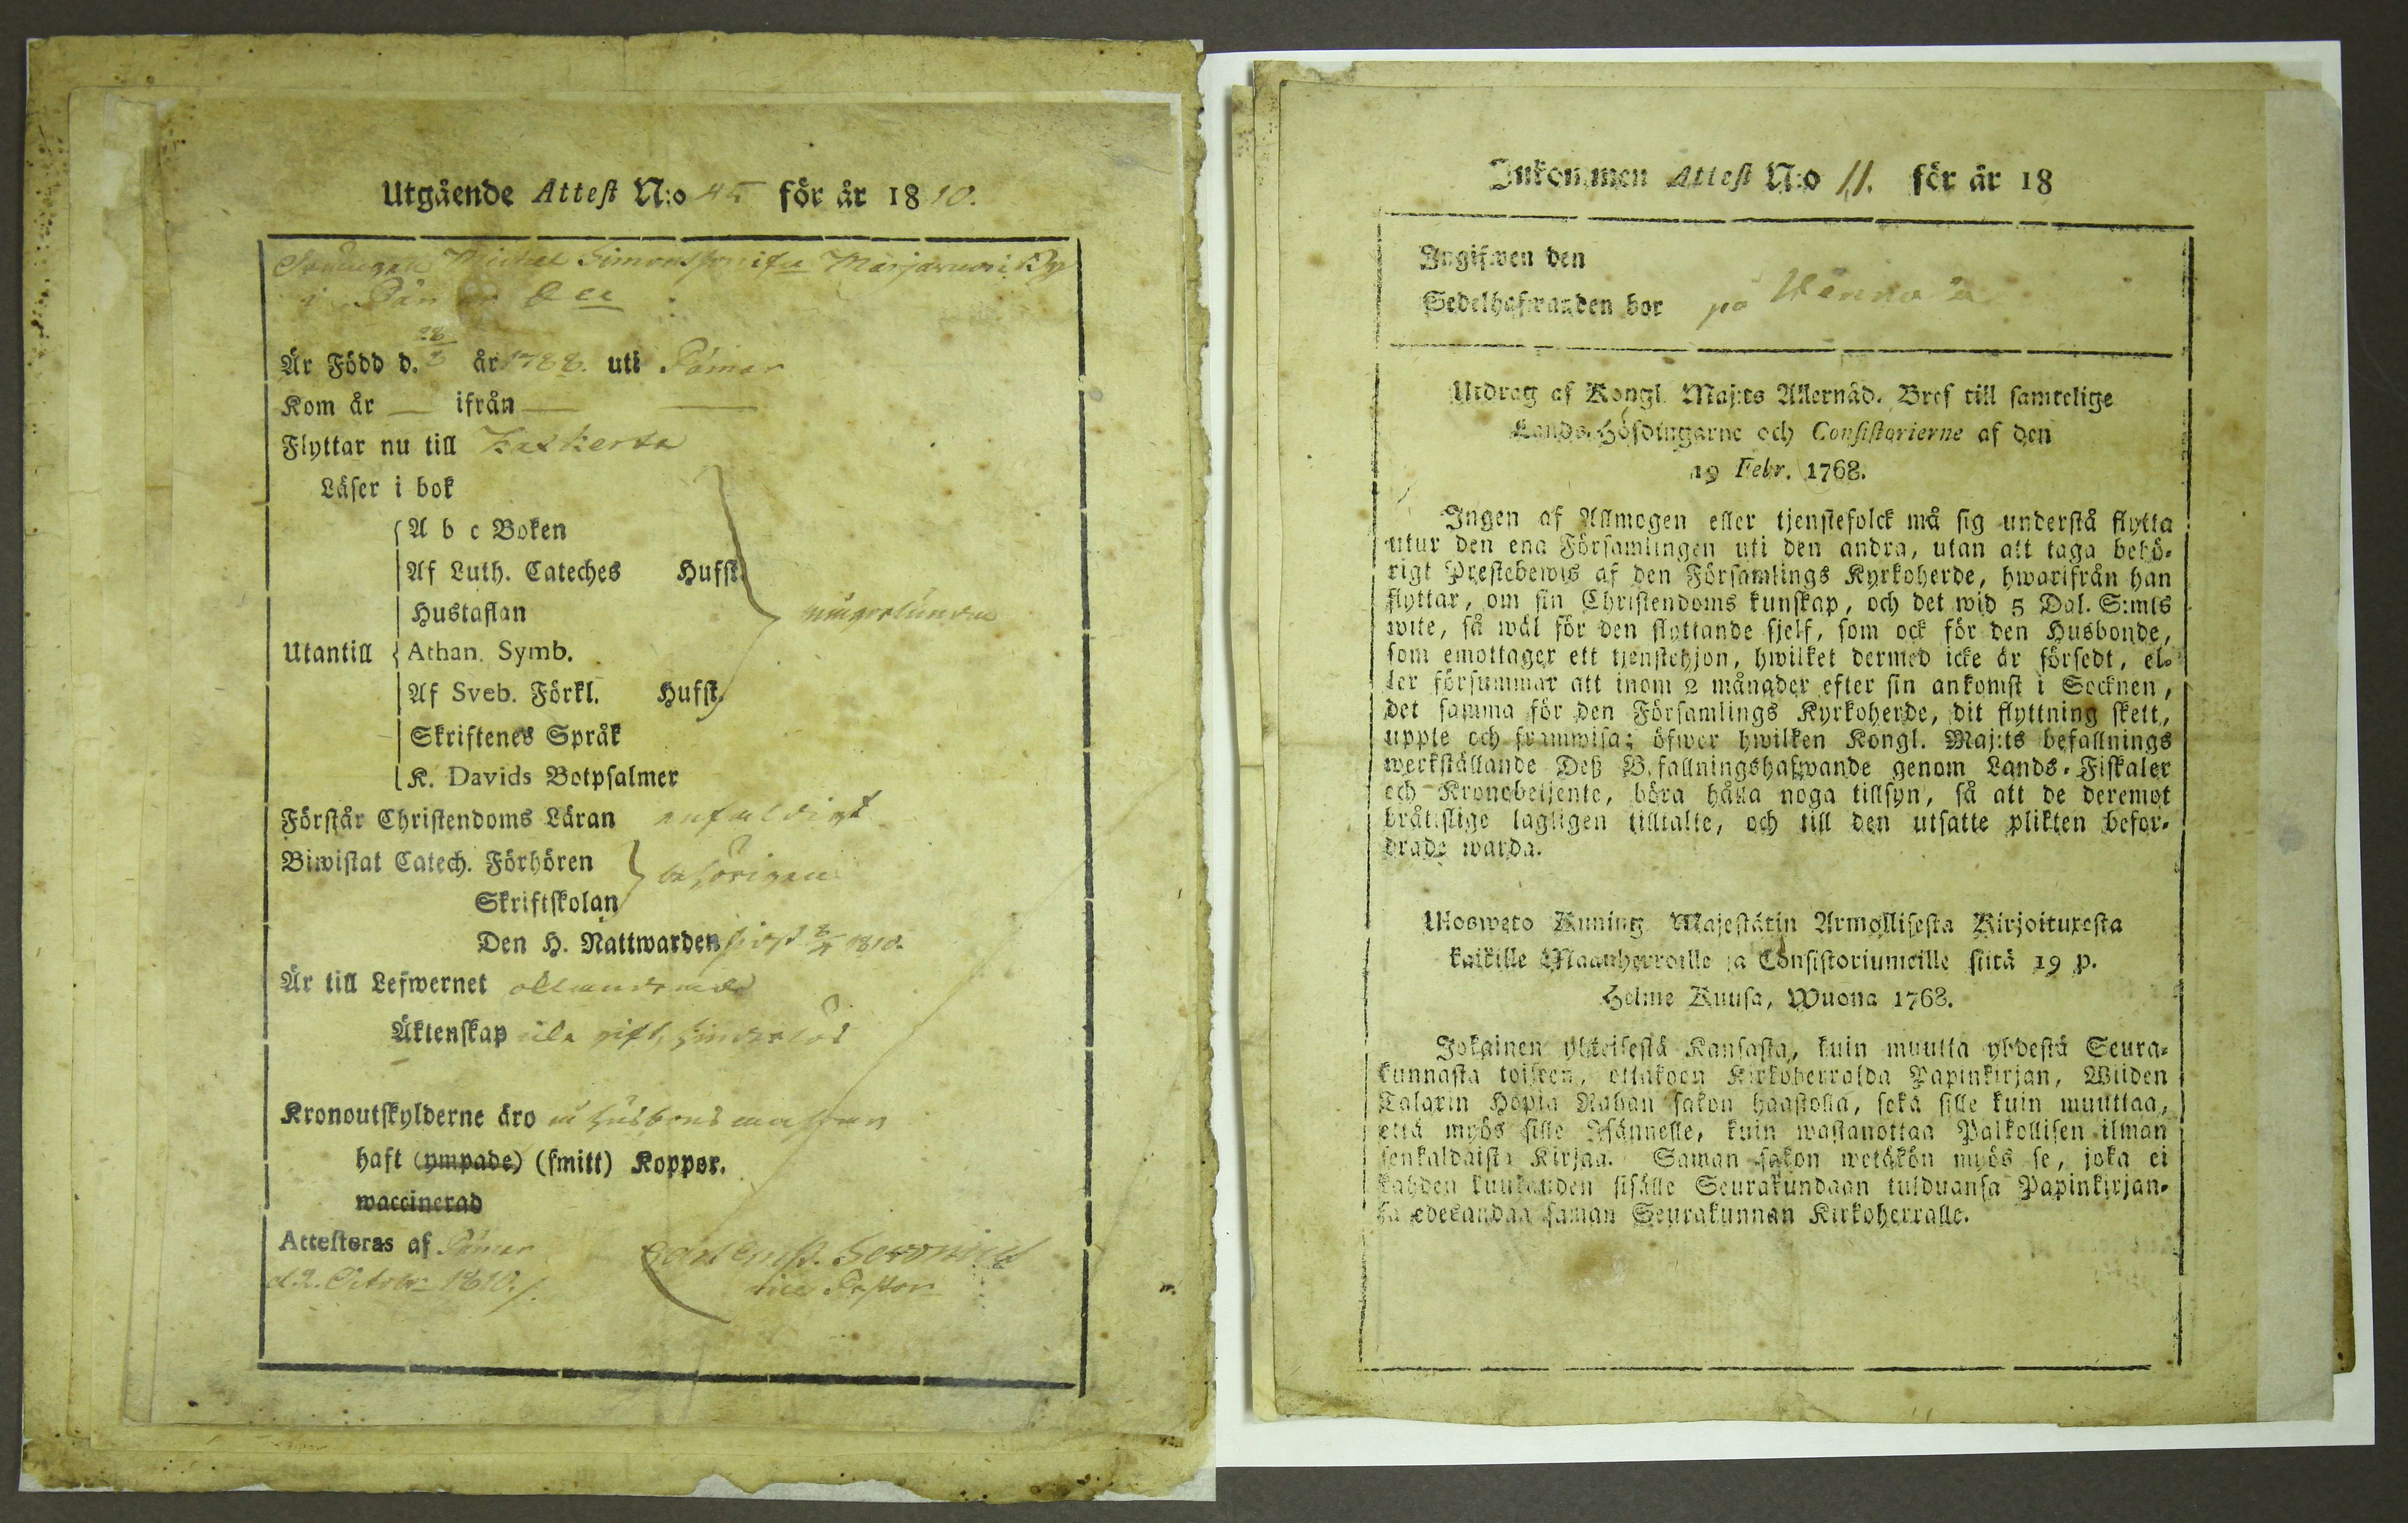 Utgående Attest N:o 45 för år 1810.
Michel Simonsson ifrån Marjavuori By
i Pämar
Är Född d. 28/3 år 1788. uti Pämar
Kom år — ifrån — —
Flyttar nu till Kaskerta
Läser i bok
A b c Boken
Af Luth. Cateches Hufst.
Hustaflan
Utantill Athan. Symb.
Af Sveb. Förkl. Hufst.
Skriftenes Språk
K. Davids Botpsalmer
Förstår Christendoms Läran enfaldigt
Biwistat Catech. Förhören behörigen
Skriftskolan
Den H. Nattwarden sidst 1810.
Är till Lefwernet
Äktenskap gift, hinderlös
Kronoutskylderne äro
haft (ympade) (smitt) Koppor.
waccinerad
Attesteras af Pämar
d. 2. October 1810.
vice Pastor
Inkommen Attest N:o 11. för år 18
Ingifwen den
Sedelhafwanden bor på
Utdrag af Kongl. Maj:ts Allernåd. Bref till samtelige
Lands-Höfdingarne och Consistorierne af den
19 Febr. 1768.
Ingen af Allmogen eller tjenstefolck må sig understå flytta
utur den ena Församlingen uti den andra, utan att taga behö-
rigt Prestebewis af den Församlings Kyrkoherde, hwarifrån han
flyttar, om sin Christendoms kunskap, och det wid 5 Dal. S:mts
wite, så wäl för den flyttande sjelf, som ock för den Husbonde,
som emottager ett tjenstehjon, hwilket dermed icke är försedt, el-
ler försummar att inom 2 månader efter sin ankomst i Socknen,
det samma för den Församlings Kyrkoherde, dit flyttning skett,
upple och framwisa; öfwer hwilken Kongl. Maj:ts befallnings
werkställande Deß Befallningshafwande genom Lands-Fiskaler
och Kronobetjente, böra hålla noga tillsyn, så att de deremot
bråtslige lagligen tilltalte, och till den utsatte plikten befor-
drade warda.
Uloswето Kuning. Majestätin Armollisesta Kirjoituxesta
kaikille Maanherroille ja Consistoriumeille siitä 19 p.
Helme Kuusa, Wuona 1768.
Jokainen yhteisestä Kansasta, kuin muutta yhdestä Seura-
kunnasta toiseen, ottakoon Kirkoherralda Papinkirjan, Wiiden
Talarin Hopia Rahan sakon haastolla, sekä sille kuin muuttaa,
että myös sille Isännelle, kuin wastanottaa Palkollisen ilman
senkaldaista Kirjaa. Saman sakon wetäkön myös se, joka ei
kahden kuukauden sisälle Seurakundaan tulduansa Papinkirjan-
sa edesandaa saman Seurakunnan Kirkoherralle.